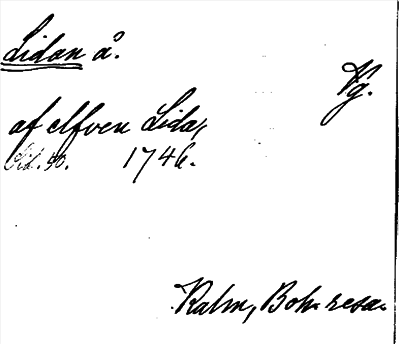 Lidan å.
Vg.
af elfven Lida,
Sid. 50. 1746.
Kalm, Boh. resa.